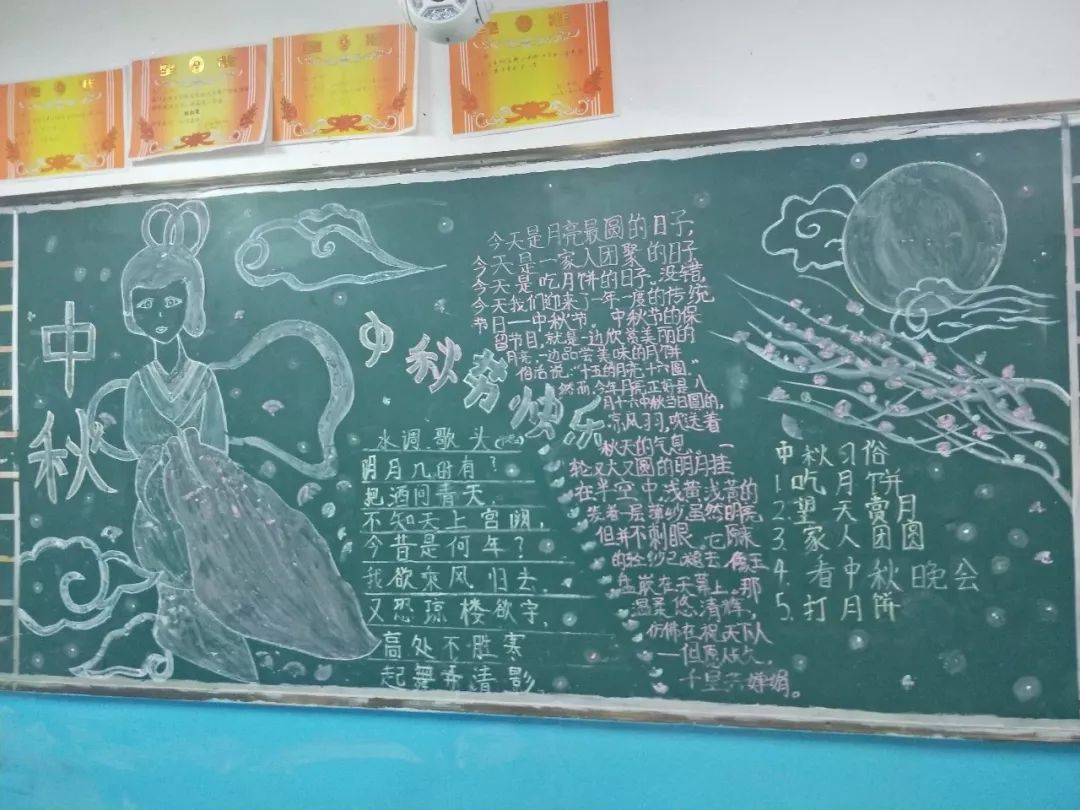 中秋
中秋节快乐
水调歌头
明月几时有？
把酒问青天
不知天上宫阙，
今昔是何年？
我欲乘风归去，
又恐琼楼欲宇，
高处不胜寒
起舞弄清影，
今天是月亮最圆的日子，
今天是一家人团聚的日子
今天是吃月饼的日子。没错，
今天我们迎来了一年一度的传统
节日——中秋节。中秋节的保
留节目，就是一边欣赏美丽的
月亮，一边品尝美味的月饼
俗话说："十五的月亮，十六圆."
然而，今年月亮正好是八
月十六中秋当日圆的，
凉风习习，吹送着
秋天的气息。一
轮又大又圆的明月挂
在半空中，浅黄浅黄的
蒙着一层薄纱虽然明亮
但并不刺眼，它原来
的轻纱已褪去，像玉
盘嵌在天幕上。那
温柔悠清辉，
仿佛在祝天下人
—但愿人长久，
千里共婵娟。
中秋习俗
1 吃月饼
2. 望天赏月
3. 家人团圆
4. 看中秋晚会
5. 打月饼